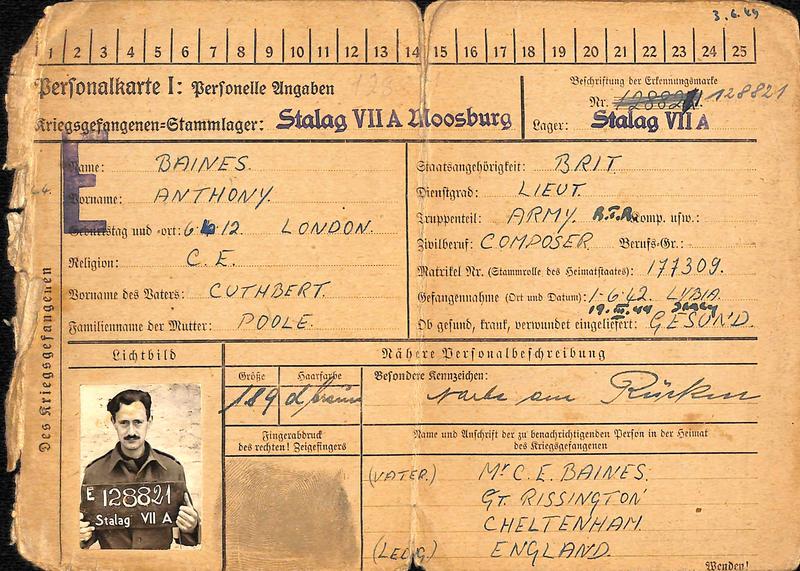 3.6.49
1 2 3 4 5 6 7 8 9 10 11 12 13 14 15 16 17 18 19 20 21 22 23 24 25
Personalkarte I: Personelle Angaben
Beschriftung der Erkennungsmarke
Nr. 128821 128821
Kriegsgefangenen-Stammlager: Stalag VII A Moosburg
Lager: Stalag VII A
E
Des Kriegsgefangenen
Name: BAINES.
Vorname: ANTHONY.
Geburtstag und -ort: 6 12 LONDON.
Religion: C. E.
Vorname des Vaters: CUTHBERT.
Familienname der Mutter: POOLE.
Staatsangehörigkeit: BRIT
Dienstgrad: LIEUT.
Truppenteil: ARMY. R.T.R. Komp. usw.:
Zivilberuf: COMPOSER Berufs-Gr.:
Matrikel Nr. (Stammrolle des Heimatstaates): 177309.
Gefangennahme (Ort und Datum): 1-6-42. LYBIA.
19.III.44
Ob gesund, krank, verwundet eingeliefert: GESUND.
Lichtbild
E 128821
Stalag VII A
Nähere Personalbeschreibung
Größe Haarfarbe
189 d braun
Besondere Kennzeichen:
Narbe am Rücken
Fingerabdruck
des rechten! Zeigefingers
Name und Anschrift der zu benachrichtigenden Person in der Heimat
des Kriegsgefangenen
(VATER.) Mr C. E. BAINES.
GT. RISSINGTON
CHELTENHAM.
(LEDIG.) ENGLAND.
Wenden!